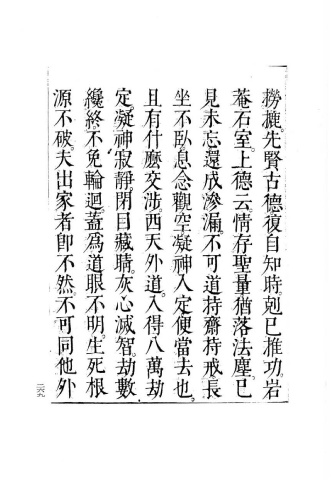 撈摝。先賢古德復自知時剋已推功。岩
菴石室。上德云情存聖量猶落法塵。已
見未忘還成滲漏。不可道持齋持戒。長
坐不臥。息念觀空凝神入定便當去也。
且有什麽交涉西天外道。入得八萬劫
定。凝神寂靜。閉目藏睛。灰心滅智。劫數
纔終。不免輪迴。蓋爲道眼不明。生死根
源不破。夫出家者卽不然。不可同他外
二六九